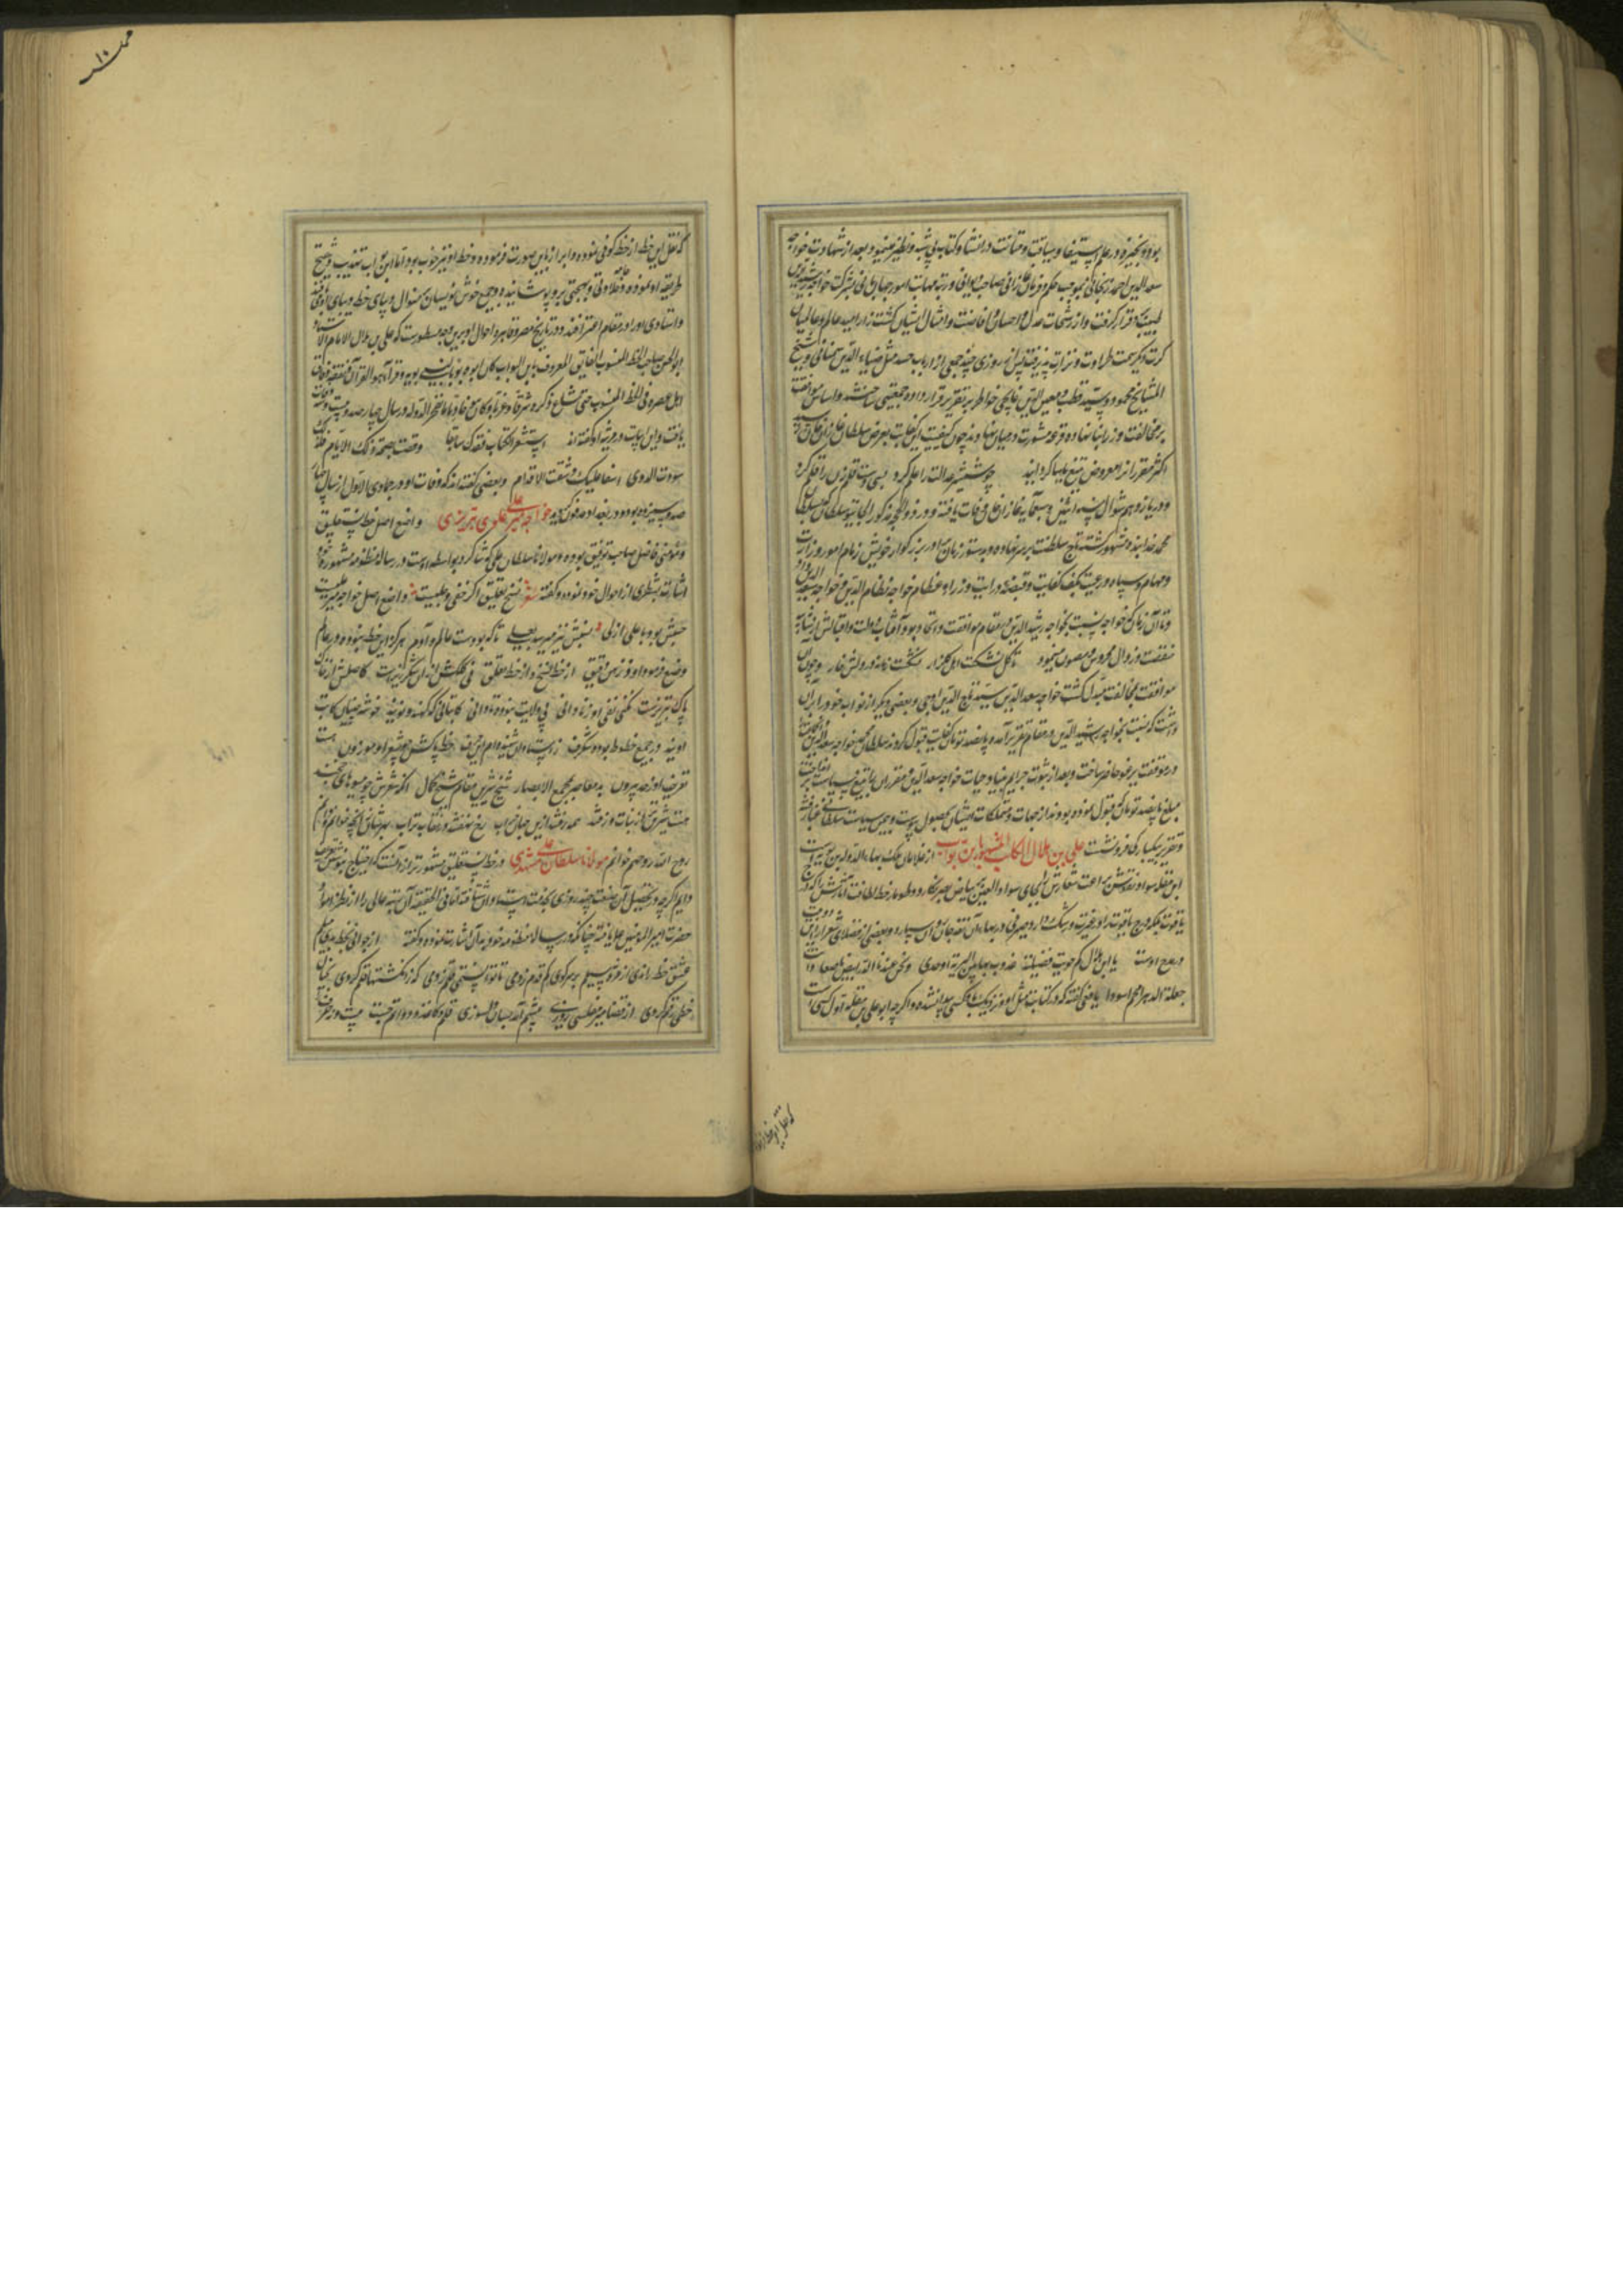 بوده و بخیره در علم استیفا و سیاقت و متانت در انشا و کتاب بی شبه و نظیر مینمود بعد از شهادت خواجه
سعد الدین احمد زنجانی بموجب حکم و فرمان غازانی صاحب دیوانی و رتبه مهمات امور جهانبانی بشرکت خواجه رشید الدین
طبیب قرار گرفت و از رشحات عدل و احسان و افاضت و افضال ایشان کشت زار امید عالم و عالمیان
کرت دیگر سمت طراوت و نزاهت پذیرفت پس از روزی چند جمعی از ارباب حسد مثل ضیاء الدین سمنانی و شیخ
المشایخ محمود و سید قطب و معین الدین غانچی خواطر بر تقریر قرار داده جمعیتی ساختند و اساس موافقت
بر مخالفت وزرا بنا نهاده قرعه مشورت در میان نهادند چون کیفیت این حکایت بعرض سلطان غازان خان رسید
اکثر مقرران را معروض تیغ سیاست گردانید چو شمشیر عدالت را علم کرد بسی دست قلم زن را قلم کرد
و در یازدهم شوال سنه اثنین و سبعمایه غازان خان وفات یافته و در ذوالحجه مذکور الجایتو سلطان که بسلطان
محمد خدابنده مشهور گشته تاج سلطنت بر سر نهاده و بدستور زمان برادر بزرگوار خویش زمام امور وزارت
و مهام سپاه و رعیت بکف کفایت و قبضه درایت وزراء عظام خواجه نظام الدین و خواجه سعد الدین داد
و تا آن زمان که خواجه نسبت بخواجه رشید الدین در مقام موافقت و اتحاد بود آفتاب دولت و اقبالش از شایبه
منقصت و زوال محروس و مصون مینمود تا گل نشکست اهل گلزار نشکست بخانه در دلش خار و چون آن
موافقت بمخالفت مبدل گشت خواجه سعد الدین سید تاج الدین اوجی و بعضی دیگر از نواب خود را بران
داشت که نسبت بخواجه رشید الدین در مقام تقریر آمده پانصد تومان کفایت قبول کردند سلطان محمد خواجه سعد الدین را
در موقف یرغو حاضر ساخت و بعد از ثبوت جرایم بنیاد حیات خواجه سعد الدین و مقرران را بتیغ سیاست
مبلغ پانصد تومان که قبول نموده بودند از جهات و متملکات ایشان بحصول پیوست و بیمن سیاست سلطانی غبار فتنه
و تقریر بیکبارگی فرو نشست علی بن هلال الکاتب المشهور بابن بواب از غلامان ملک بهاء الدوله بن بویه است
ابن مقله سواد نقوش براعت شعارش را بجای سواد العین بر بیاض بصر نگارد و طومار خط لطافت آثارش را که درج
یاقوت بلکه درج یاقوت را در غیرت و رشک دارد صیرفی در بهاء آن نقد جان روان سپارد و بعضی از فضلای شعر این دو بیت
در مدح اوست یا ابن هلال کم حویت فضیلة
جعلة الدهر انجم اسودا یافعی گفته که در کتابت مثل او و نزدیک باو کسی پیدا نشده و اگر چه ابو علی بن مقله اول کسی است
که نقل این خط از
که نقل این خط از خط کوفی نموده و ابراز باین صورت فرموده و خط او نیز خوب بود اما ابن بواب تهذیب و تنقیح
طریقه او نموده و طلاوتی و بهجتی برو پوشانیده و جمیع خوش نویسان بمنوال و پای خط و پای او رفته
و استادی او را در مقام اعتراف‌اند و در تاریخ مصر و قاهره احوال او برین وجه مسطورست که علی بن هلال الامام الاستاد
ابو الحسن صاحب الخط المنسوب الفایق المعروف بابن البواب کان ابوه بوابا لبنی بویه و قرأ هو القرآن و تفقه و فاق
اهل عصره فی الخط المنسوب حتی شاع ذکره شرقا و غربا و کان مع خادما بفخر الدوله در سال چهار صد و بیست و سه وفات
یافت و این ابیات در مرثیه او گفته‌اند استشعر الکتاب فقدک سالفا و قضت بصحة ذلک الایام فلذلک
سودت الدوی اسفا علیک و شقت الاقلام و بعضی گفته‌اند که وفات او در جمادی الاول از سال چهار
صد و سیزده بوده و در بغداد مدفون گردید خواجه میر علی تبریزی واضع اصل خط نستعلیق
و مؤمنی فاضل صاحب توفیق بوده و مولانا سلطان علی که شاگرد بواسطه اوست در رساله منظومه مشهوره خود
اشارت بشطری از احوال خود نموده و گفته شعر نسخ تعلیق اگر خفی و جلیست واضع اصل خواجه میر علیست
نسبش بود با علی ازلی نسبتش نیز میرسد بعلی تا که بودست عالم و آدم هرگز این خط نبوده در عالم
وضع فرمود او ز ذهن دقیق از خط نسخ و از خط تعلیق نی کلکش از ان شکر ریزست کاصلش از خاک
پاک تبریزست نکنی نفی او ز نادانی بی ولایت نبوده تا دانی کاتبانی که کهنه و نویند خوشه چینان کاتب
اویند در جمیع خطوط بوده شگرف ز استادان شنیده‌ام این حرف خط پاکش چو شعر او موزون هست
تعریف او ز حد بیرون بد معاصر بمجمع الابصار شیخ شیرین مقال شیخ کمال آنکه شعرش چو میوهای خجند
هست شیرین‌تر از نبات و ز قند همه رفتند ازین جهان خراب رخ نهفتند در نقاب تراب بهر شان آنچه خوانم و دانم
روح الله روحهم خوانم مولانا سلطان علی مشهدی در خط نستعلیق مشهورتر از آنست که احتیاج بنوشتن تعریف
دایم اگر چه در تحصیل آن صنعت چند روزی بخدمت استادان شتافته اما فی الحقیقه آن رتبه عالی را از نظر امداد
حضرت امیر المؤمنین علی یافته چنانکه در رساله منظومه خود به آن اشارت نموده و گفته از جوانی بخط بدی میلم
عشق خط راندی از مژه سیلم بر سر کوی کم قدم زدمی تا توانستمی قلم زدمی که ز انگشتها قلم کردی بخیال
خطی رقم کردی از قضا میر مفلسی روزی پیشم آمد بسان دلسوزی قلم و کاغذ و دواتم جست بیست و نه حرف